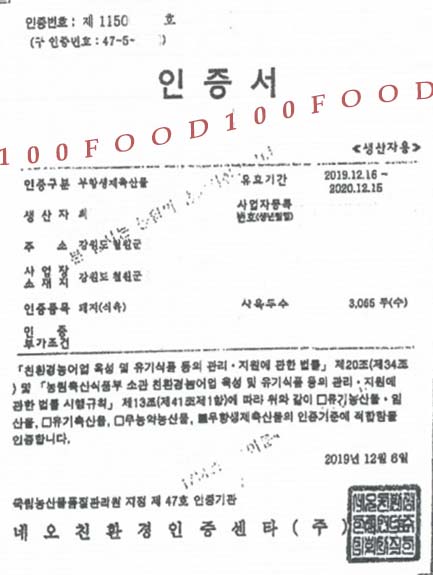 인증번호 : 제 1150 호
(구 인증번호 : 47-5- )
인 증 서
100FOOD100FOOD
≪생산자용≫
인증구분 무항생제축산물 유효기간 2019.12.16 ~ 2020.12.15
생 산 자 최 사업자등록번호(생년월일)
주 소 강원도 철원군
사 업 장 소 재 지 강원도 철원군
인증품목 돼지(식육) 사육두수 3,065 두(수)
인 증 부가조건
「친환경농어업 육성 및 유기식품 등의 관리·지원에 관한 법률」 제20조(제34조
) 및 「농림축산식품부 소관 친환경농어업 육성 및 유기식품 등의 관리·지원에
관한 법률 시행규칙」 제13조(제41조제1항)에 따라 위와 같이 □유기농산물·임
산물, □유기축산물, □무농약농산물, ■무항생제축산물의 인증기준에 적합함을
인증합니다.
2019년 12월 6일
국립농산물품질관리원 지정 제 47호 인증기관
네 오 친 환 경 인 증 센 타 ( 주 )